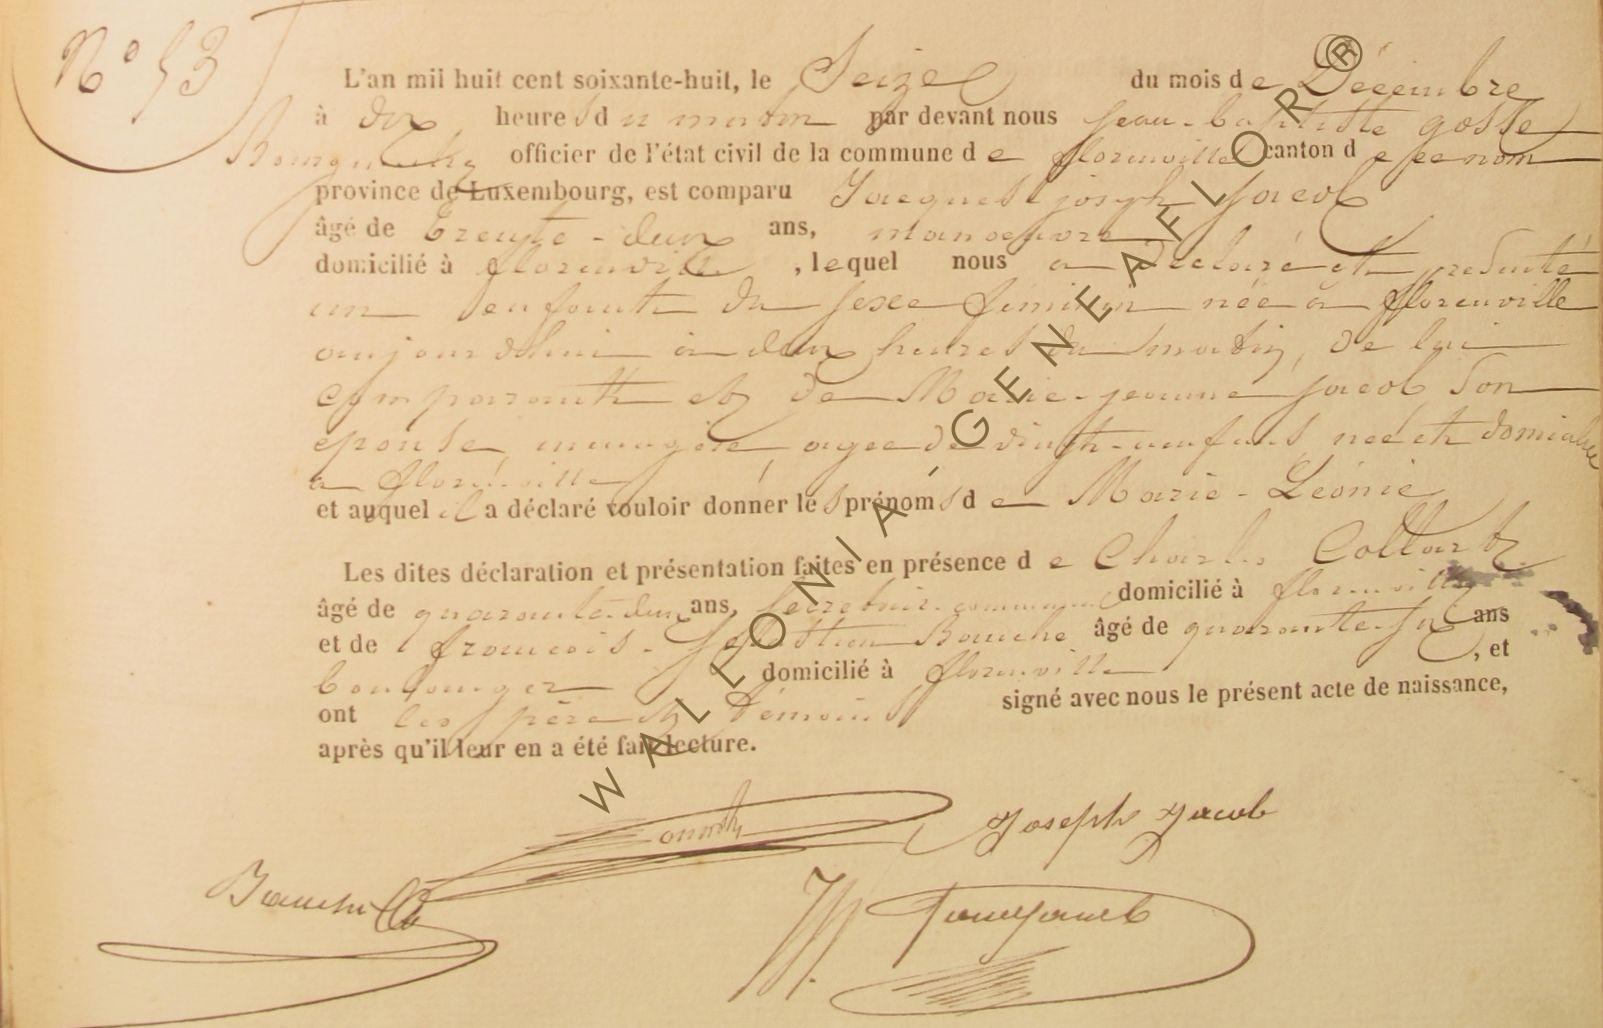 N° 53
L'an mil huit cent soixante-huit, le Seize du mois de Décembre
à dix heures du matin par devant nous Jean-baptiste gosse
Bourgmestre officier de l'état civil de la commune de florenville canton de ce nom
province de Luxembourg, est comparu Jacques joseph Jacob
âgé de trente-deux ans, manoeuvre
domicilié à florenville, lequel nous a déclaré et présenté
un enfant du sexe féminin née à florenville
aujourdhui à deux heures du matin, de lui
comparant et de Marie-jeanne jacob son
épouse, ménagère, agée de vingt-neuf ans, née et domiciliée
a florenville
et auquel il a déclaré vouloir donner les prénoms de Marie-Léonie
Les dites déclaration et présentation faites en présence de Charles Collart
âgé de quarante-deux ans, secretaire communal domicilié à florenville
et de françois-Sebastien Bauche âgé de quarante-six ans
boulanger domicilié à florenville, et
ont les père et témoins signé avec nous le présent acte de naissance,
après qu'il leur en a été fait lecture.
Joseph Jacob
WALLONIA-GENEAFLOR®